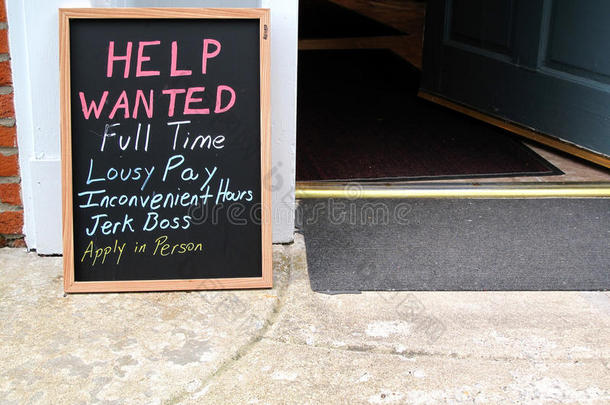 HELP
WANTED
Full Time
Lousy Pay
Inconvenient Hours
Jerk Boss
Apply in Person